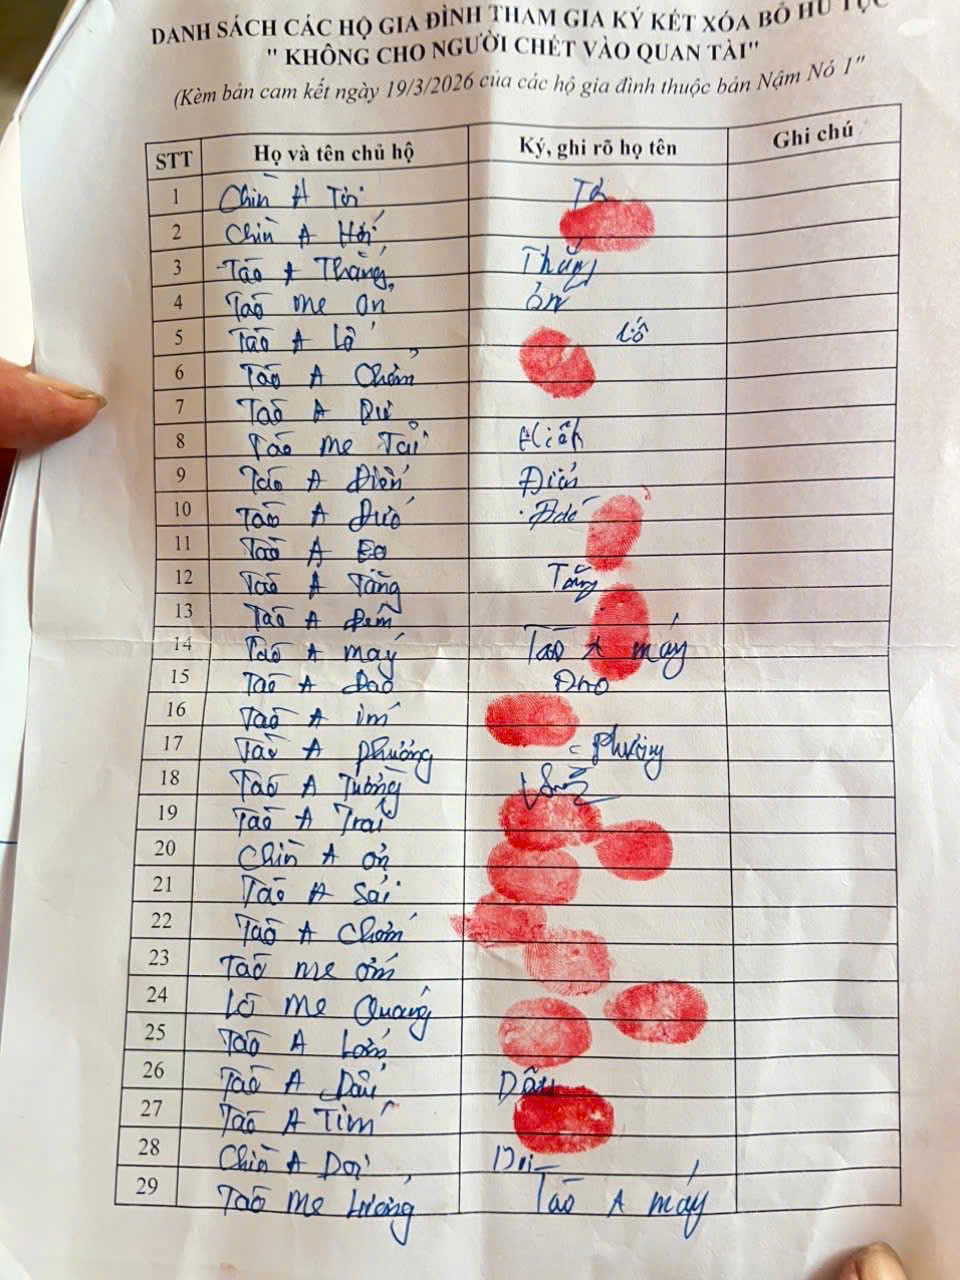 DANH SÁCH CÁC HỘ GIA ĐÌNH THAM GIA KÝ KẾT XÓA BỎ HỦ TỤC
" KHÔNG CHO NGƯỜI CHẾT VÀO QUAN TÀI"
(Kèm bản cam kết ngày 19/3/2026 của các hộ gia đình thuộc bản Nậm Nó 1"
STT Họ và tên chủ hộ Ký, ghi rõ họ tên Ghi chú
1 Chìn A Tới
2 Chìn A
3 Tào A Thắng Thắng
4 Tào Me Ơn Ơn
5 Tào A Lố Lố
6 Tào A
7 Tào A Dư
8 Tào Me Tại
9 Tào A Điến Điến
10 Tào A
11 Tào A
12 Tào A Tăng Tăng
13 Tào A Đem
14 Tào A máy Tào A máy
15 Tào A Đao Đao
16 Tào A im
17 Tào A Phượng Phượng
18 Tào A Tưởng
19 Tào A
20 Chìn A ỏn
21 Tào A Sái
22 Tào A
23 Tào me
24 Lò me Quang
25 Tào A
26 Tào A Dâu Dâu
27 Tào A Tìm
28 Chìn A Dơi
29 Tào Me Tào A máy